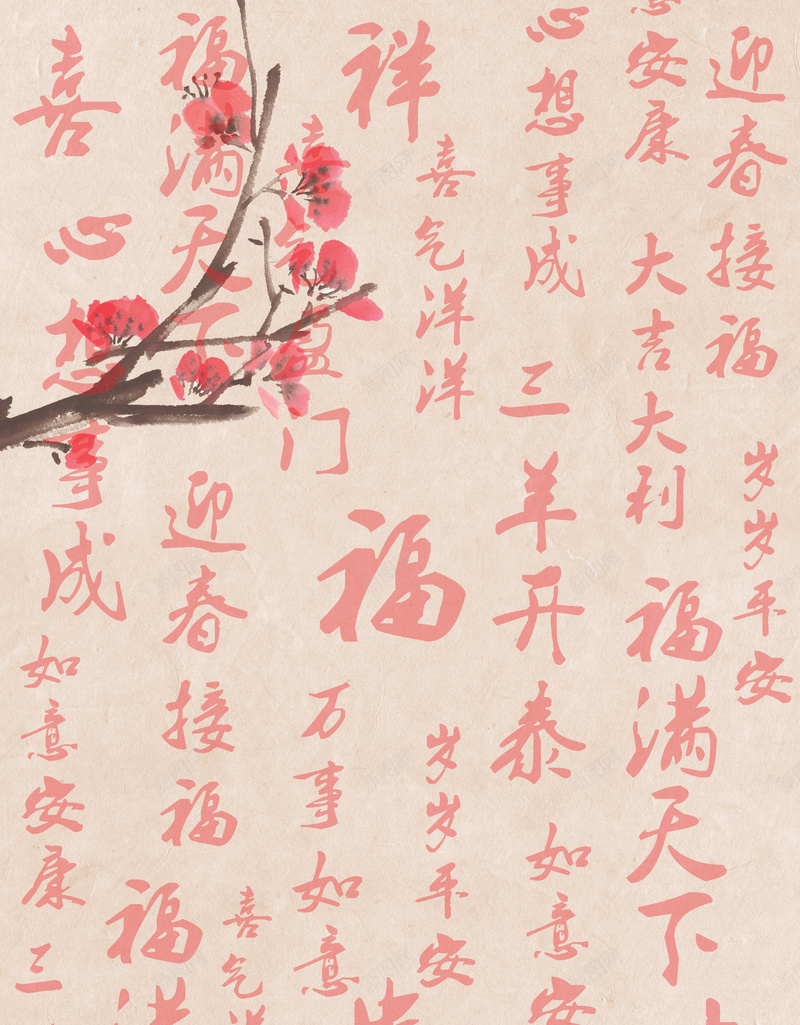 迎春接福
岁岁平安
安康
大吉大利
福满天下
心想事成
三羊开泰
如意安
祥
喜气洋洋
岁岁平安
喜气盈门
福
万事如意
福满天下
迎春接福
喜气洋
福满
喜
心想事成
如意安康
三